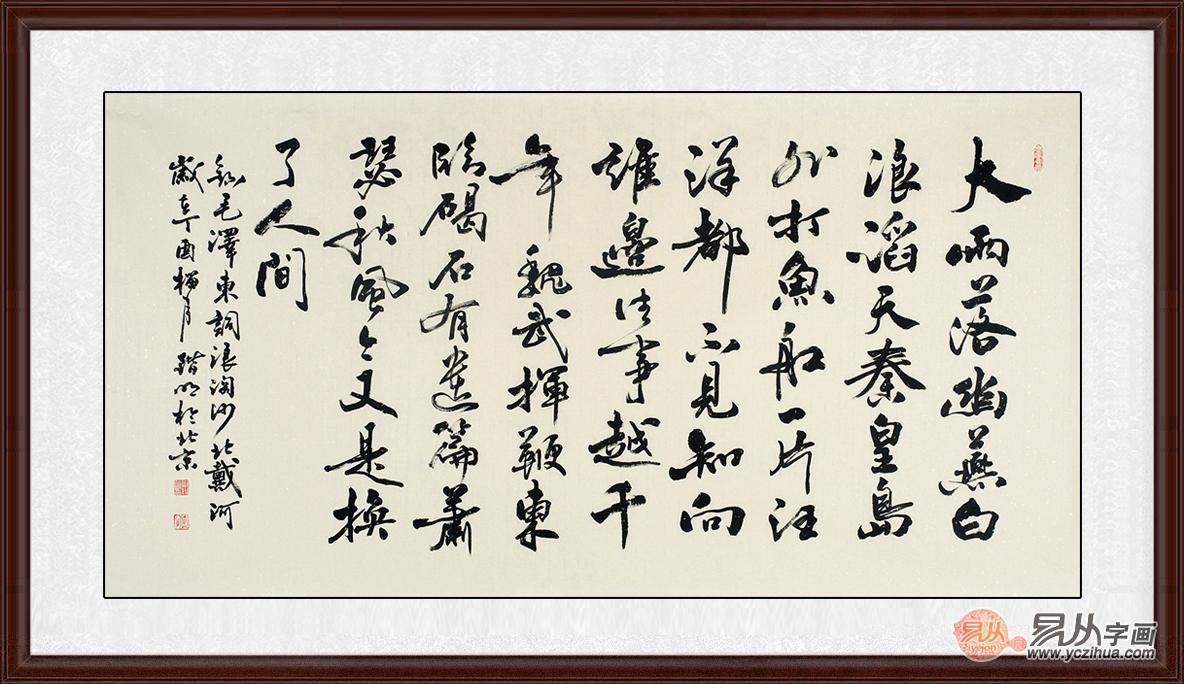 大雨落幽燕白
浪滔天秦皇島
外打魚船一片汪
洋都不見知向
誰邊往事越千
年魏武揮鞭東
臨碣石有遺篇蕭
瑟秋風今又是換
了人間
錄毛澤東詞浪淘沙北戴河
歲在丁酉梅月明於北京
易从
易从字画
www.yczihua.com